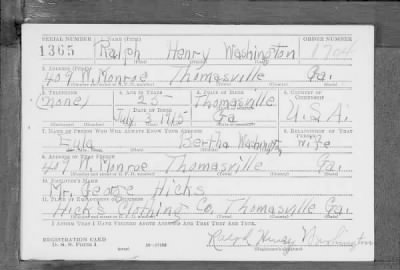 SERIAL NUMBER 1. NAME (Print) ORDER NUMBER
1365 Ralph Henry Washington 1704
(First) (Middle) (Last)
2. ADDRESS (Print)
409 W. Monroe Thomasville Ga.
3. TELEPHONE 4. AGE IN YEARS 5. PLACE OF BIRTH 6. COUNTRY OF CITIZENSHIP
(none) 25 Thomasville
DATE OF BIRTH
July 3 1915 Ga U.S.A.
7. NAME OF PERSON WHO WILL ALWAYS KNOW YOUR ADDRESS 8. RELATIONSHIP OF THAT PERSON
Eula Bertha Washington wife
9. ADDRESS OF THAT PERSON
409 W. Monroe Thomasville Ga.
10. EMPLOYER'S NAME
Mr. George Hicks
11. PLACE OF EMPLOYMENT OR BUSINESS
Hick's Clothing Co. Thomasville Ga.
I AFFIRM THAT I HAVE VERIFIED ABOVE ANSWERS AND THAT THEY ARE TRUE.
REGISTRATION CARD
D. S. S. FORM 1 (over)
Ralph Henry Washington